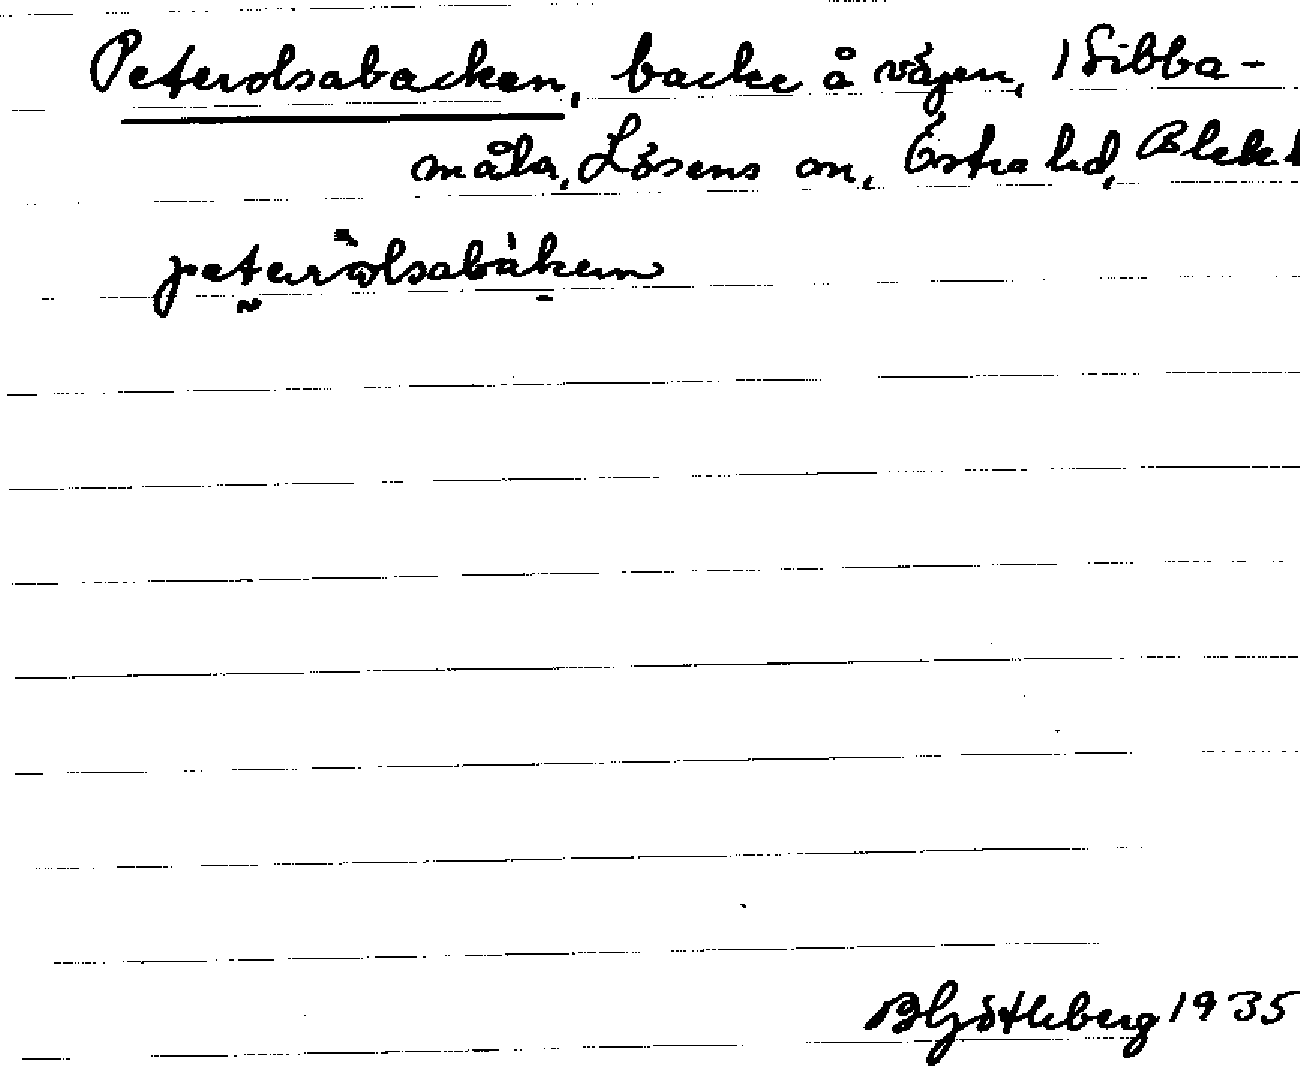 Peterolsabacken, backe å vägen, i Sibba-
måla, Lösens sn, Östra hd, Blek
peterolsabaken
B Götleberg 1935